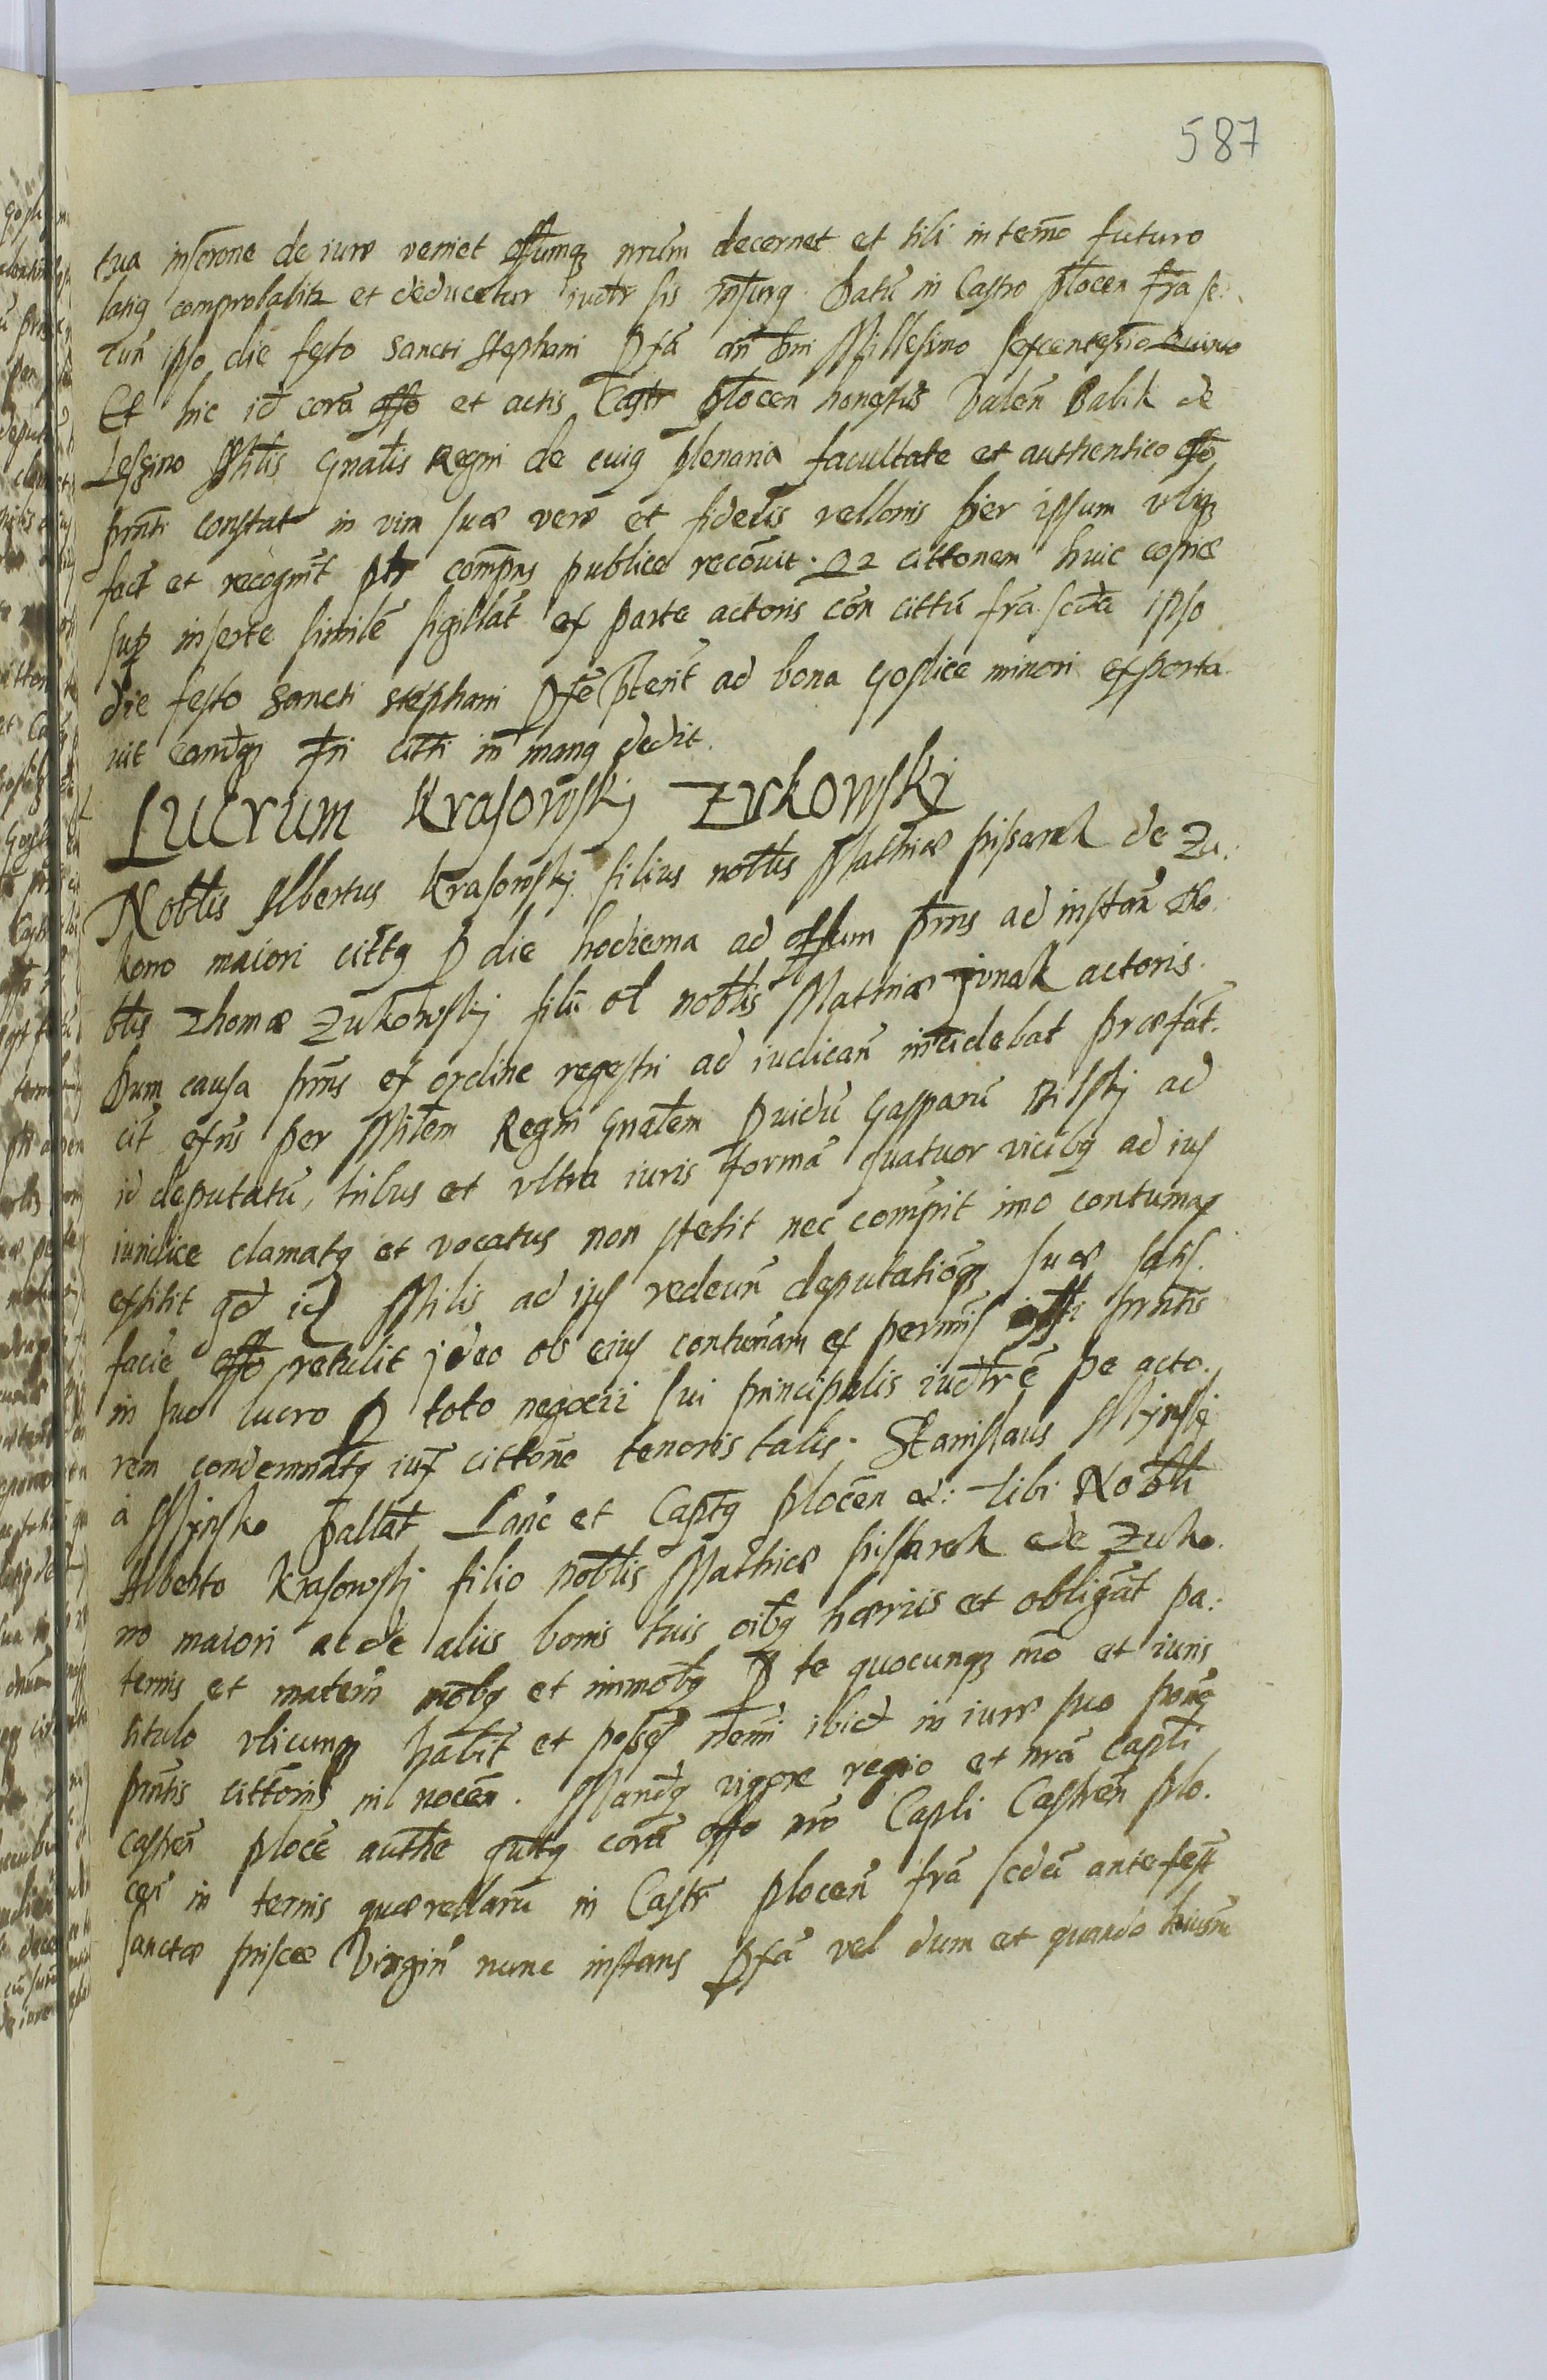 587
tua inscrone de iure veniet offumq nrum decernet et tibi in termo futuro
latiq comprobabitz et deducetur iudtr sis Datu in Castro plocen fra se.
cun ipso die festo sancti Stephani pfa an dni Millesimo sexcentesimo quinto
Et hic id cora offo et actis Castr plocen honestus Valen Babik de
Leszino Mlis Gnalis Regni de cuiq plenaria facultate et authentico offo
prnti constat in vim suæ veræ et fidelis rellonis per ipsum ubiq
fact et recognit ptr comprns publice recouit. Qz cittonem huic copiæ
sup inserte simile sigillat ex parte actoris con cittu fra scda ipso
die festo sancti stephani pfe pterit ad bona Goslice minori exporta
uit eandq fri citti in manq dedit.
Lucrum Krasowskj Zukowskj
Nobtlis Albertus Krasowskj filius nobtlis Mathiæ pisarek de Zu:
kowo maiori cittq p die hodierna ad offum prns ad instan No
btlis Thomæ Zukowskj filii ol nobtlis Mathiæ Junak actoris.
Dum causa prns ex ordine regestri ad iudican incidebat præfat.
cit exns per Mitem Regni Gnalem prouidu Gasparu Bilskj ad
id deputatu, tribus et ultra iuris forma quatuor vicibq ad ius
iuridice clamatq et vocatus non stetit nec comprit imo contumax
exstitit qd id Mitis ad ius redeun deputationq suæ satis.
facie offo retulit ideo ob eius contumam ex permis offi prntis
in suo lucro p toto negocii sui principalis iudtre pe acto.
rem condemnatq iux cittone tenoris talis. Stanislaus Mjnskj
a Mjnsko pallat Lanc et Captq plocen &: tibi Nobtli
Alberto Krasowskj filio nobtlis Mathiæ pissarek de Zuko.
wo maiori ac de aliis bonis tuis oibq hæriis et obligat pa:
ternis et matern mobq et immobq p te quocunq mo et iuris
titulo ubicunq habit et posses nemi ibid in iure suo ponq
prntis cittonis nil nocen. Mandq vigore regio et nra capli
castren ploce authe qutq cora offo nro Capli Castren plo.
cen in termis quærellaru in Castr plocen fra scda ante fest
sanctæ priscæ Virgin nunc instans pfa vel dum et quando huiusm